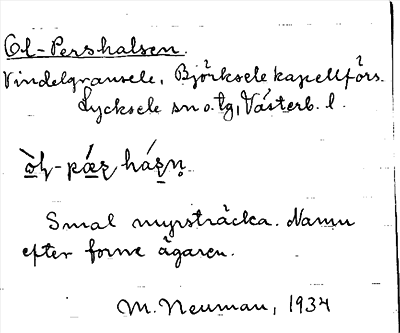 Ol-Pershalsen.
Vindelgransele, Björksele kapellförs.
Lycksele sn o. tg, Västerb. l.
Smal myrsträcka. Namn
efter förre ägaren.
M. Neuman, 1934